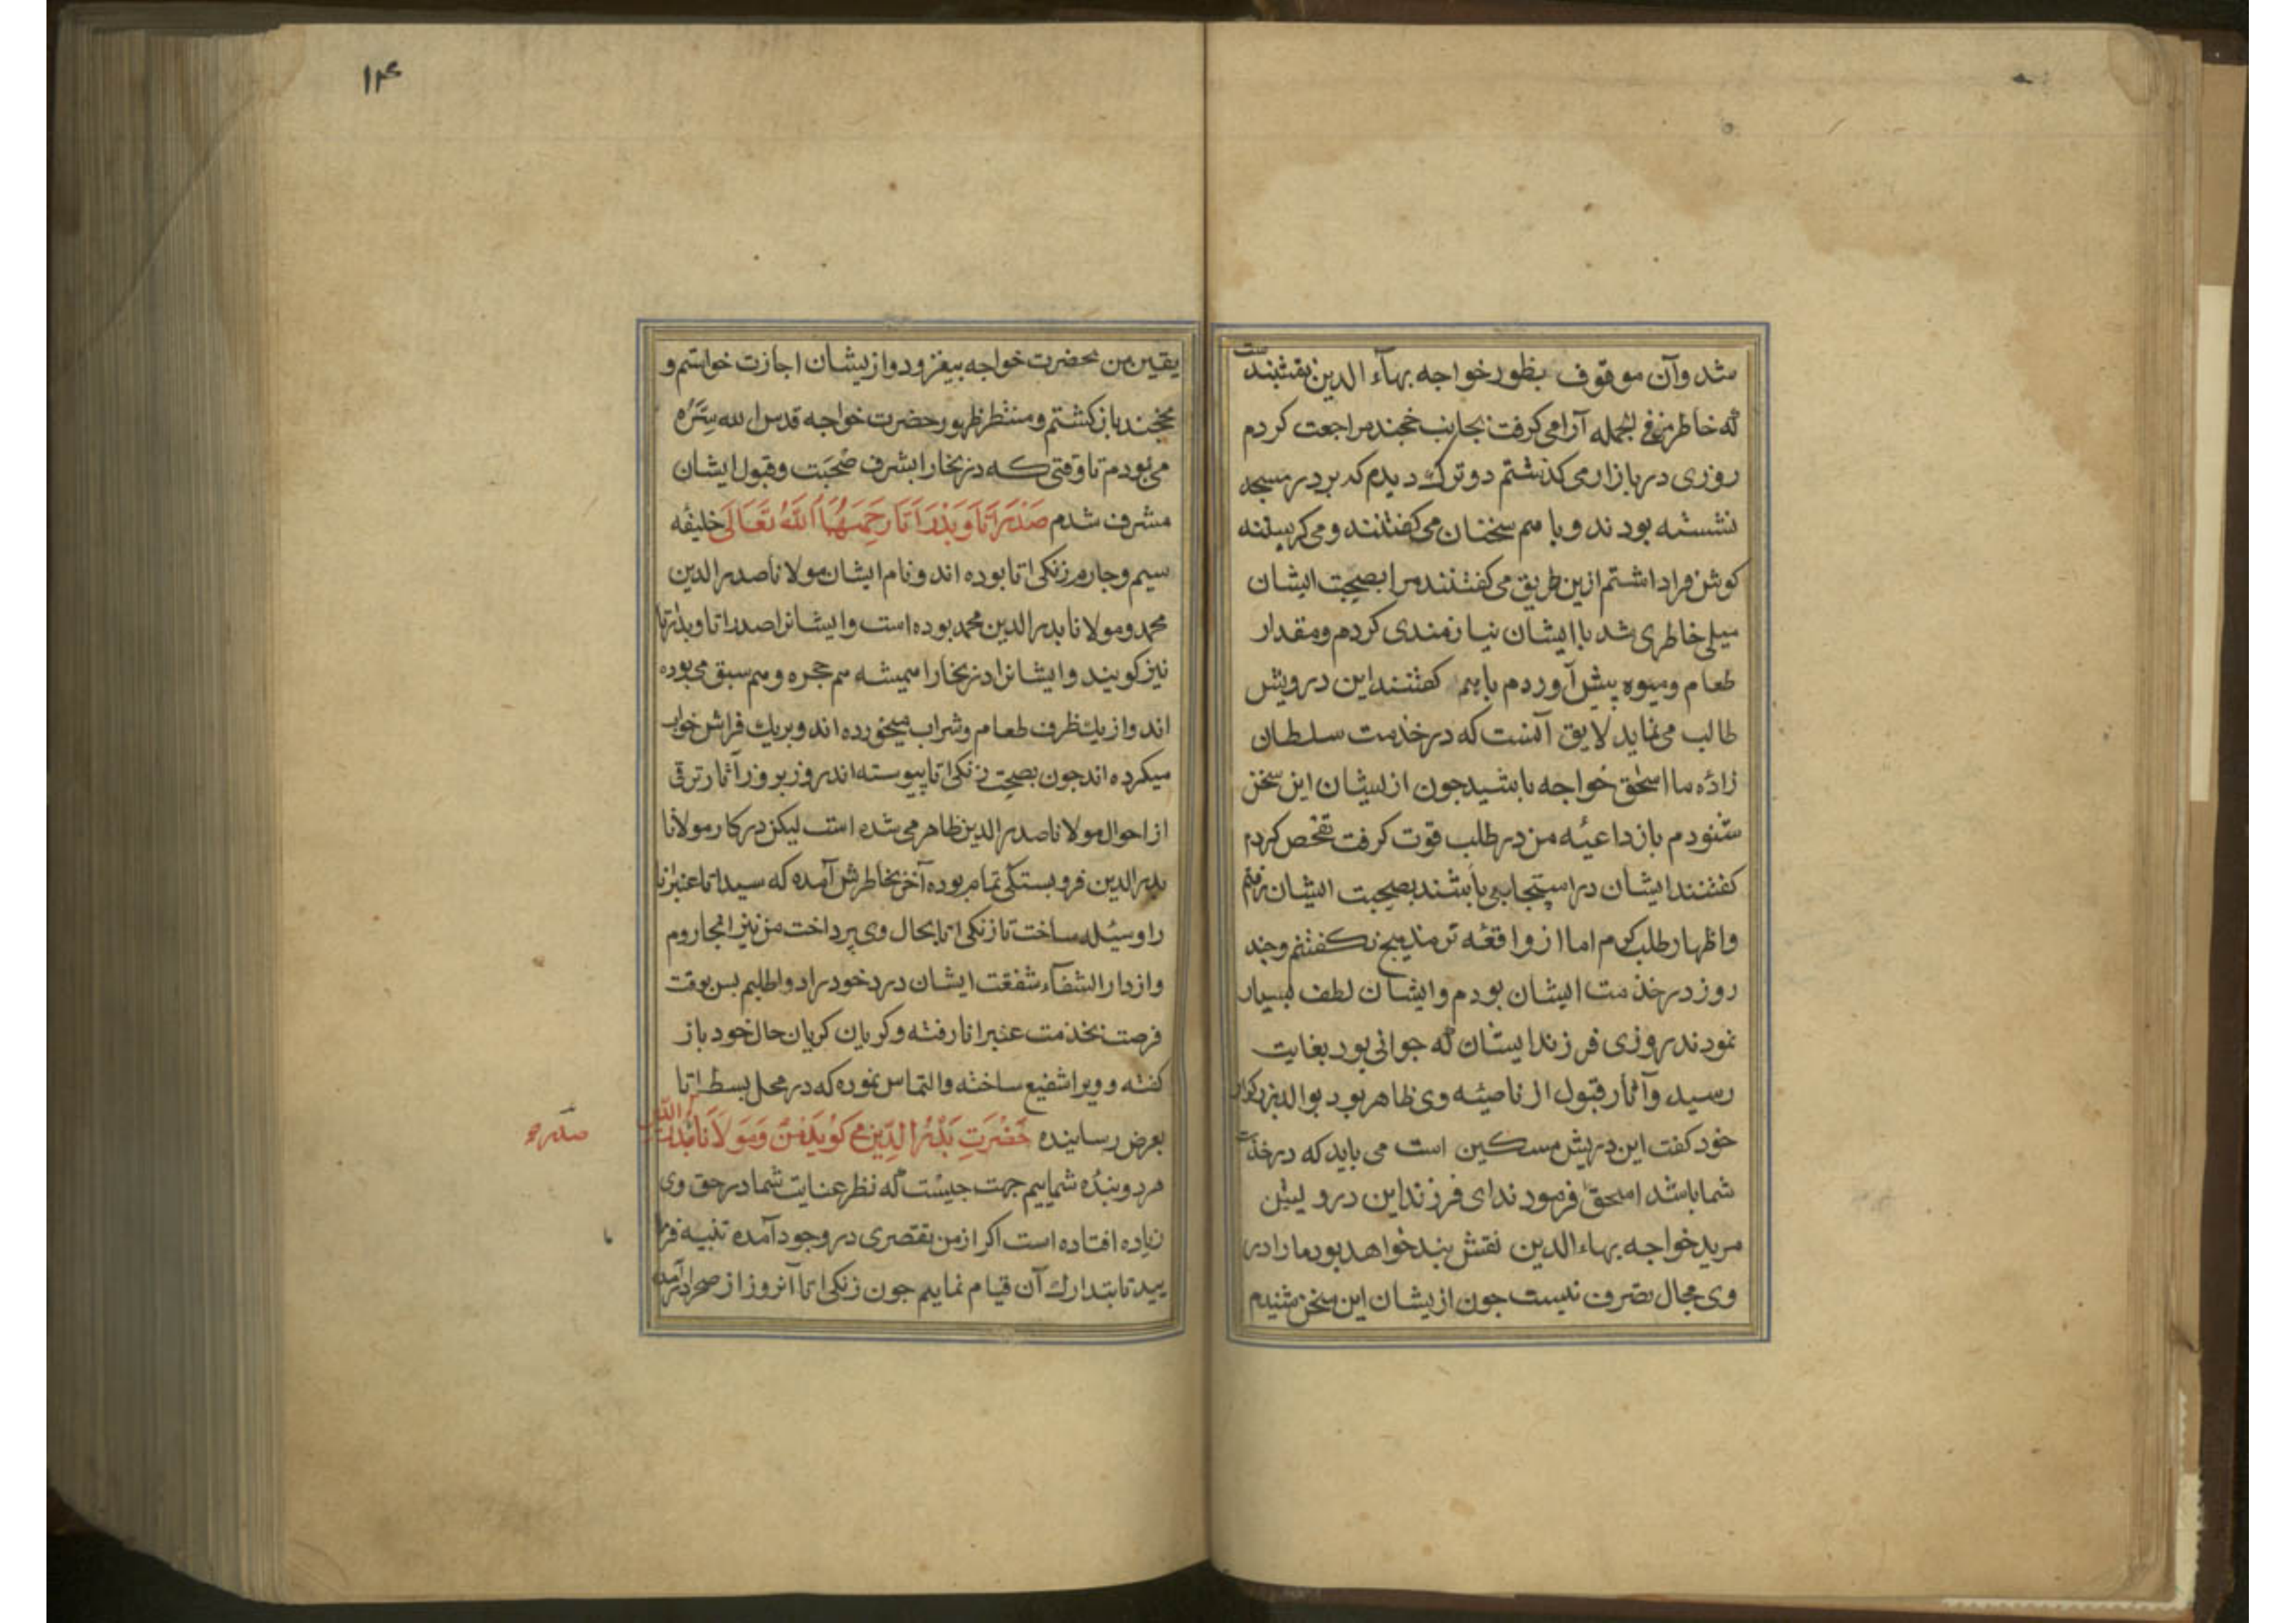 شد وآن موقوف بظهور خواجه بهآء الدین نقشبندست
که خاطر من فی الجمله آرامی گرفت بجانب خجند مراجعت کردم
روزی در بازار می کذشتم دو ترک دیدم که بر در مسجد
نشسته بودند و با هم سخنان می کفتند و می کریستند
کوش فرا داشتم ازین طریق می کفتند مرا بصحبت ایشان
میلی خاطری شد با ایشان نیازمندی کردم ومقدار
طعام ومیوه پیش آوردم باهم کفتند این درویش
طالب می نماید لایق آنست که در خدمت سلطان
زاده ما اسحق خواجه باشید جون از ایشان این سخن
شنودم باز داعیه من در طلب قوت کرفت تفحص کردم
کفتند ایشان در اسپیجاب می باشند بصحبت ایشان رفتم
واظهار طلب کردم اما از واقعه ترمذ هیج نکفتم وجند
روز در خدمت ایشان بودم وایشان لطف بسیار
نمودند روزی فرزند ایشان که جوانی بود بغایت
رسید وآثار قبول از ناصیه وی ظاهر بود بوالد بزرکوار
خود کفت این دریش مسکین است می باید که در خدمت
شما باشد اسحق فرمودند ای فرزند این درویش
مرید خواجه بهاء الدین نقش بند خواهد بود ما را در
وی مجال تصرف نیست جون از یشان این سخن شنیدم
۱۴
یقین من بحضرت خواجه بیفزود واز یشان اجازت خواستم و
بخجند باز کشتم ومنتظر ظهور حضرت خواجه قدس الله سره
می بودم تا وقتی که در بخارا بشرف صحبت وقبول ایشان
مشرف شدم صدر اتا وبدر اتا رحمهما الله تعالی خلیفه
سیم وجارم زنکی اتا بوده اند ونام ایشان مولانا صدر الدین
محمد ومولانا بدر الدین محمد بوده است وایشانرا صدر اتا وبدر اتا
نیز کویند وایشانرا در بخارا همیشه هم حجره وهم سبق می بوده
اند واز یك ظرف طعام وشراب میخورده اند وبر یك فراش خواب
میکرده اند جون بصحبت زنکی اتا پیوسته اند روز بروز آثار ترقی
از احوال مولانا صدر الدین ظاهر می شده است لیکن در کار مولانا
بدر الدین فروبستکی تمام بوده آخر بخاطرش آمده که سید اتا عنبر اتا
را وسیله ساخت تا زنکی اتا بحال وی پرداخت من نیز انجا روم
واز دار الشفآء شفقت ایشان درد خود را دوا طلبم پس بوقت
فرصت بخدمت عنبر انا رفته وکریان کریان حال خود باز
کفته وویرا شفیع ساخته والتماس نموده که در محل بسط اتا
بعرض رسانیده حضرت بدر الدین می کوید من ومولانا صدر الدین
صدر صح
هر دو بنده شماییم جهت جیست که نظر عنایت شما در حق وی
زیاده افتاده است اکر از من تقصری در وجود آمده تنبیه فرما
یید تا بتدارك آن قیام نمایم جون زنکی اتا آنروز از صحرا در آمد